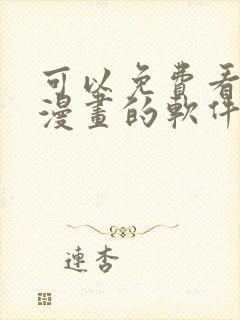 可以免費看
漫畫的軟件
連杏